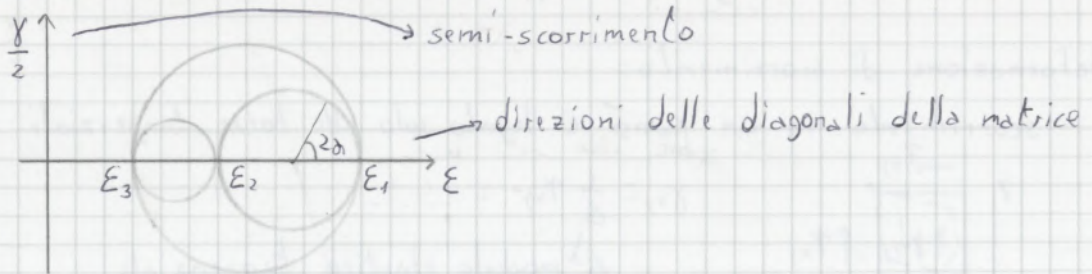 γ/2
semi-scorrimento
direzioni delle diagonali della matrice
2α
ε3 ε2 ε1 ε